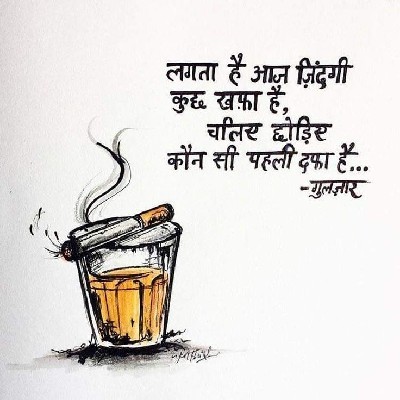 लगता है आज ज़िंदगी
कुछ खफ़ा है,
चलिए छोड़िए
कौन सी पहली दफ़ा है...
-गुलज़ार